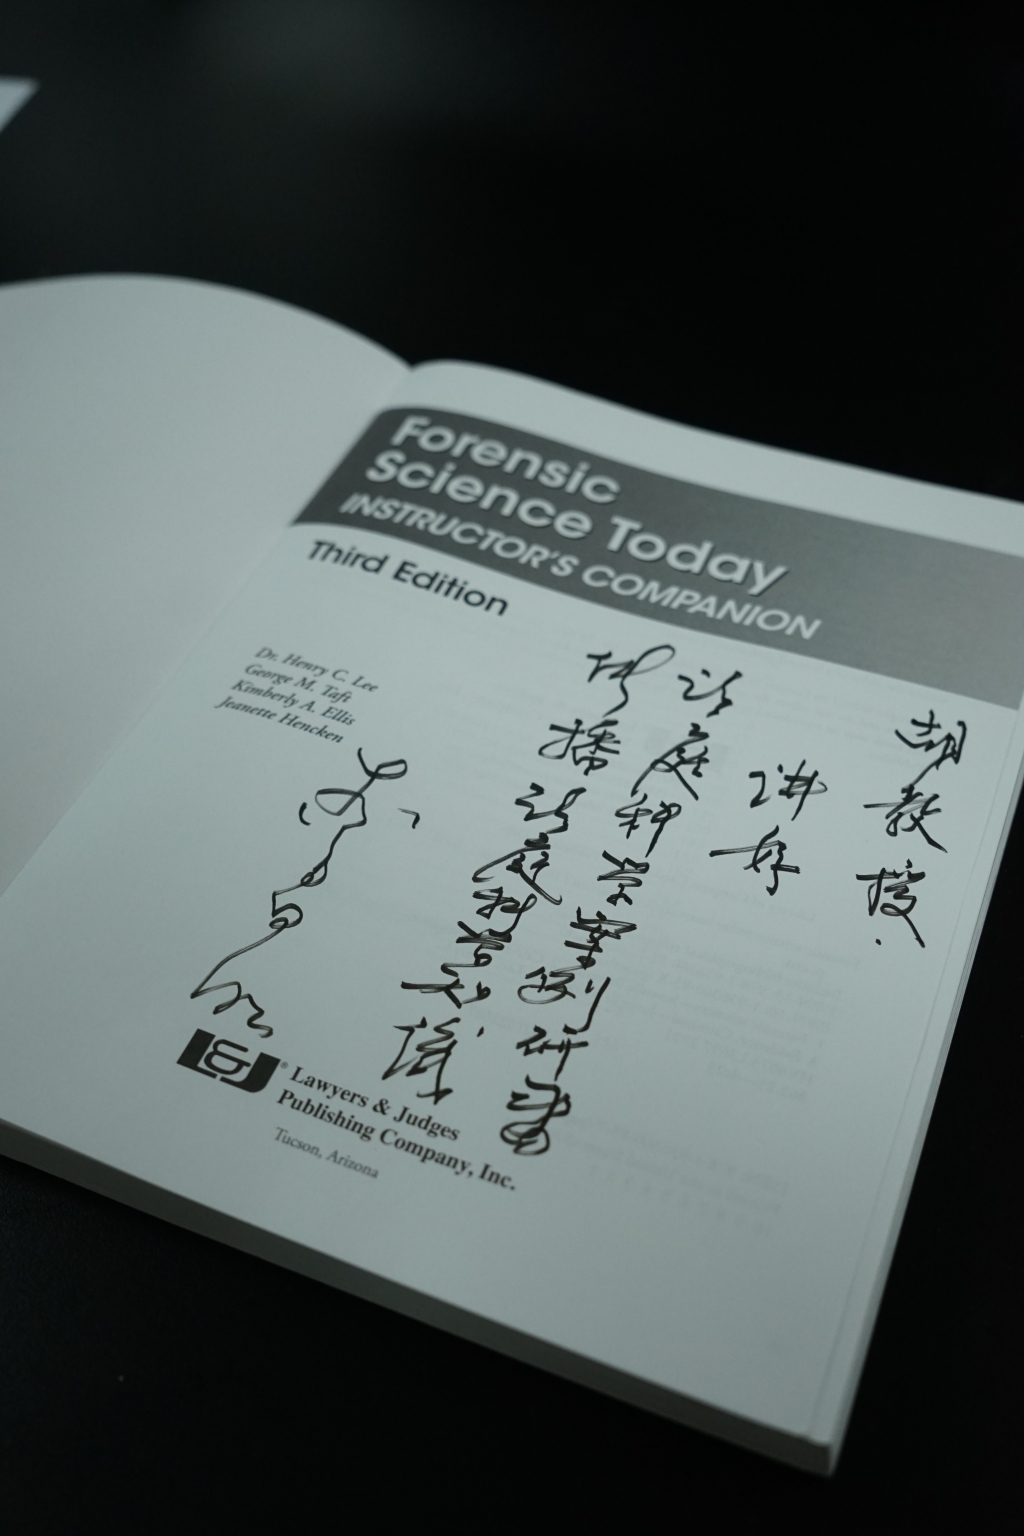 Forensic
Science Today
INSTRUCTOR'S COMPANION
Third Edition
Dr. Henry C. Lee
George M. Taft
Kimberly A. Ellis
Jeanette Hencken
胡教授.
讲好
法庭科学案例故事
传播法庭科学知識
L&J®
Lawyers & Judges
Publishing Company, Inc.
Tucson, Arizona